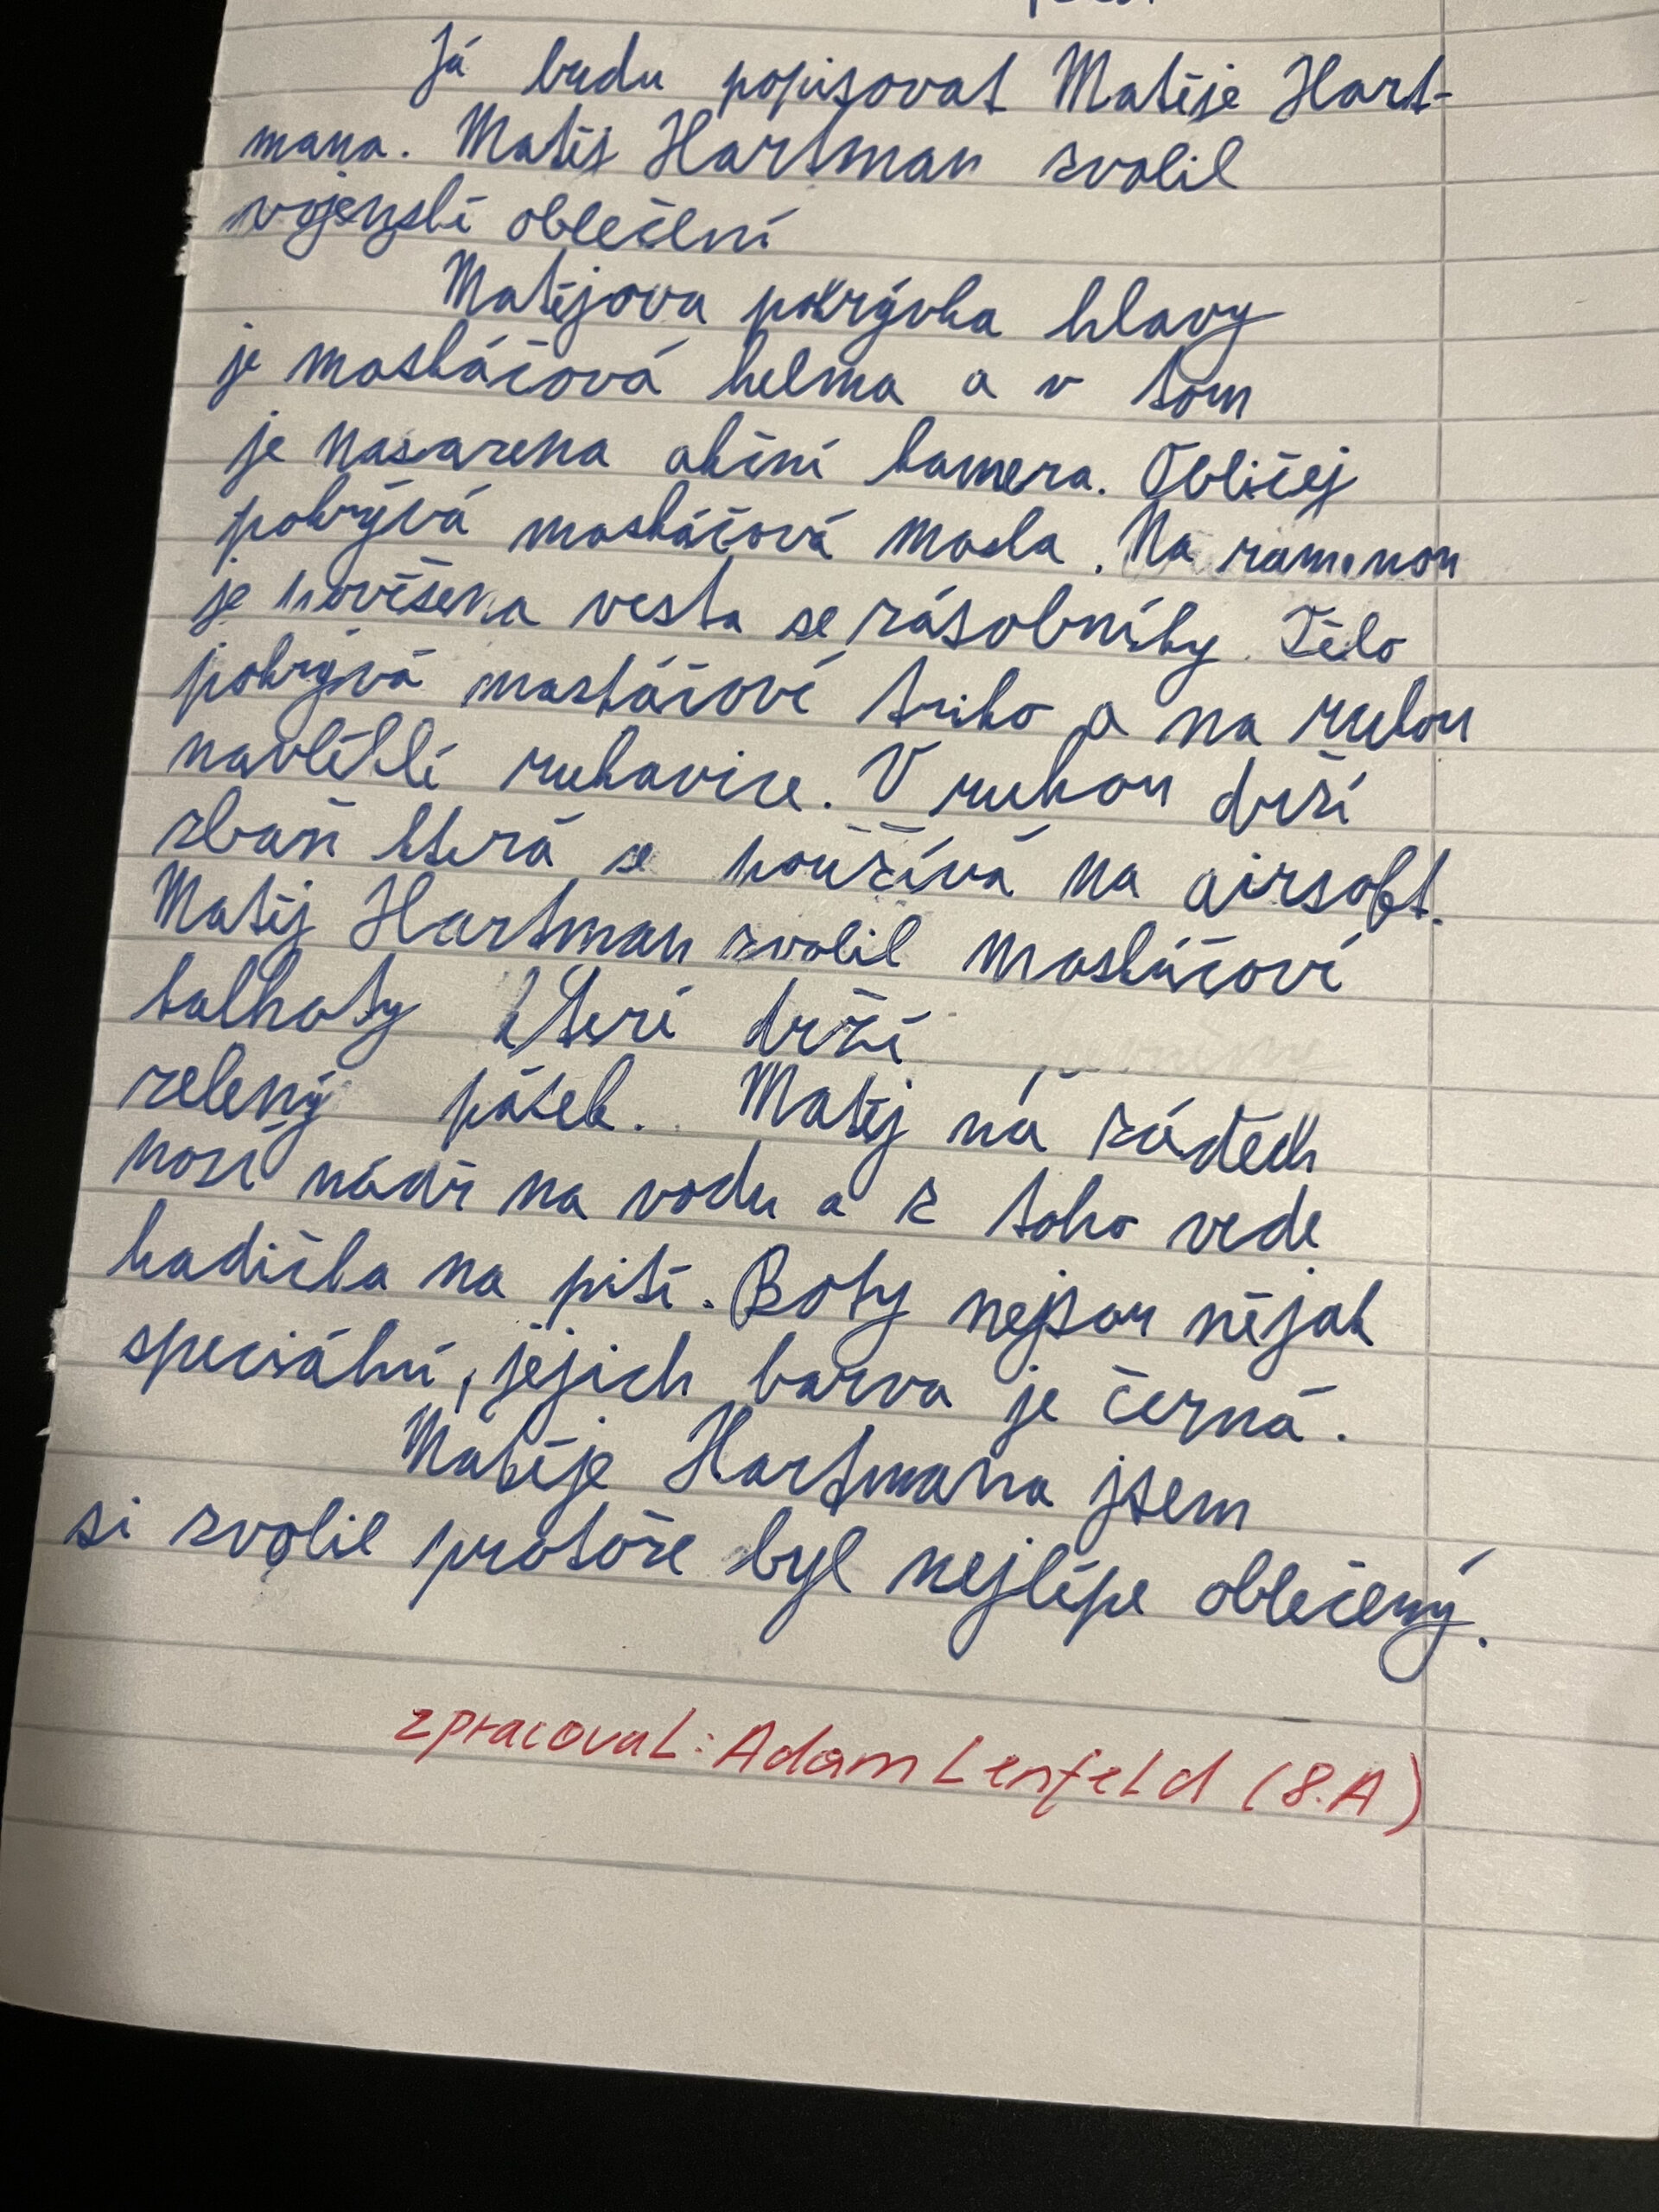 Já budu popisovat Matěje Hart-
mana. Matěj Hartman zvolil
vojenské oblečení
Matějova pokrývka hlavy
je maskáčová helma a v tom
je nasazena akční kamera. Obličej
pokrývá maskáčová maska. Na ramenou
je pověšena vesta se zásobníky. Tělo
pokrývá maskáčové triko a na rukou
navléklé rukavice. V rukou drží
zbaň která se používá na airsoft.
Matěj Hartman zvolil maskáčové
kalhoty které drží
zelený pásek. Matěj na zádech
nosí nádrž na vodu a z toho vede
hadička na pití. Boty nejsou nějak
speciální, jejich barva je černá.
Matěje Hartmana jsem
si zvolil protože byl nejlépe oblečený.
zpracoval: Adam Lenfeld (8.A)